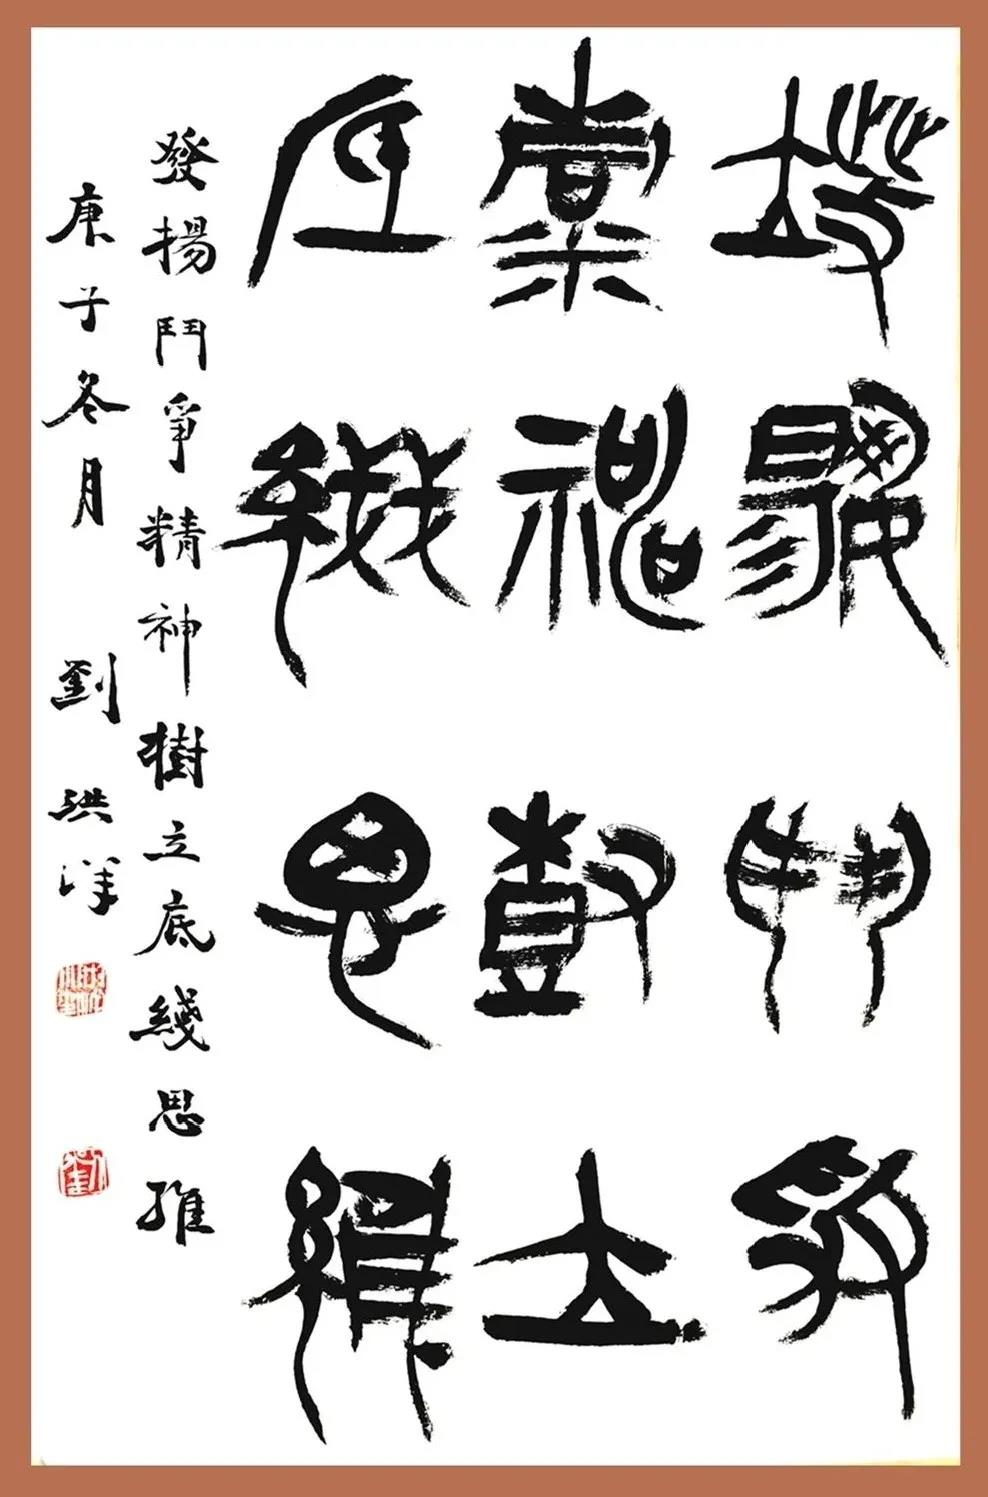 發揚鬥爭
精神樹立
底綫思維
發揚鬥爭精神樹立底綫思維
庚子冬月 劉洪洋